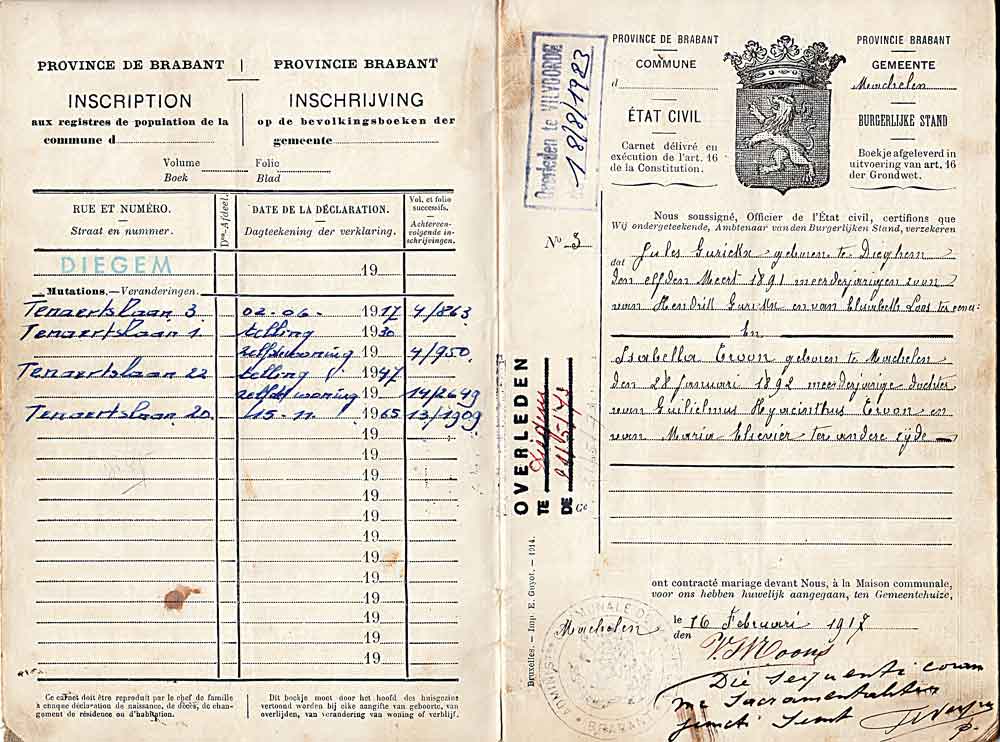 PROVINCE DE BRABANT | PROVINCIE BRABANT
INSCRIPTION INSCHRIJVING
aux registres de population de la op de bevolkingsboeken der
commune d gemeente
Volume Folio
Boek Blad
RUE ET NUMÉRO. DATE DE LA DÉCLARATION. Vol. et folio successifs.
Straat en nummer. Dagteekening der verklaring. Achtereenvolgende inschrijvingen.
DIEGEM 19
Mutations.—Veranderingen.
Tenaertslaan 3 02-06- 1917 4/863
Tenaertslaan 1 telling 1930
zelfde woning 19 4/950
Tenaertslaan 22 telling 1947
zelfde woning 19 14/2649
Tenaertslaan 20 15-11 1965 13/1909
19
19
19
19
19
19
19
19
19
19
19
19
Ce carnet doit être reproduit par le chef de famille
à chaque déclaration de naissance, de décès, de chan-
gement de résidence ou d'habitation.
Dit boekje moet door het hoofd des huisgezins
vertoond worden bij elke aangifte van geboorte, van
overlijden, van verandering van woning of verblijf.
Overleden te VILVOORDE
18/8/1923
PROVINCE DE BRABANT
COMMUNE
d
ÉTAT CIVIL
Carnet délivré en
exécution de l'art. 16
de la Constitution.
PROVINCIE BRABANT
GEMEENTE
Machelen
BURGERLIJKE STAND
Boekje afgeleverd in
uitvoering van art. 16
der Grondwet.
No 3
Nous soussigné, Officier de l'État civil, certifions que
Wij ondergeteekende, Ambtenaar van den Burgerlijken Stand, verzekeren
dat Jules Gurickx geboren te Dieghem
den elfden Meert 1891 meerderjarigen zoon
van Hendrik Gurickx en van Elisabeth Loos ter eener
En
Isabella Croon geboren te Machelen
den 28 Januari 1892 meerderjarige dochter
van Guilielmus Hyacinthus Croon en
van Maria Elsevier ter andere zijde
OVERLEDEN
TE
DE
ont contracté mariage devant Nous, à la Maison communale,
voor ons hebben huwelijk aangegaan, ten Gemeentehuize,
Machelen le 16 Februari 1917
den
Die sequenti coram
me Sacramentaliter
juncti sunt
Bruxelles. — Imp. E. Guyot. — 1914.